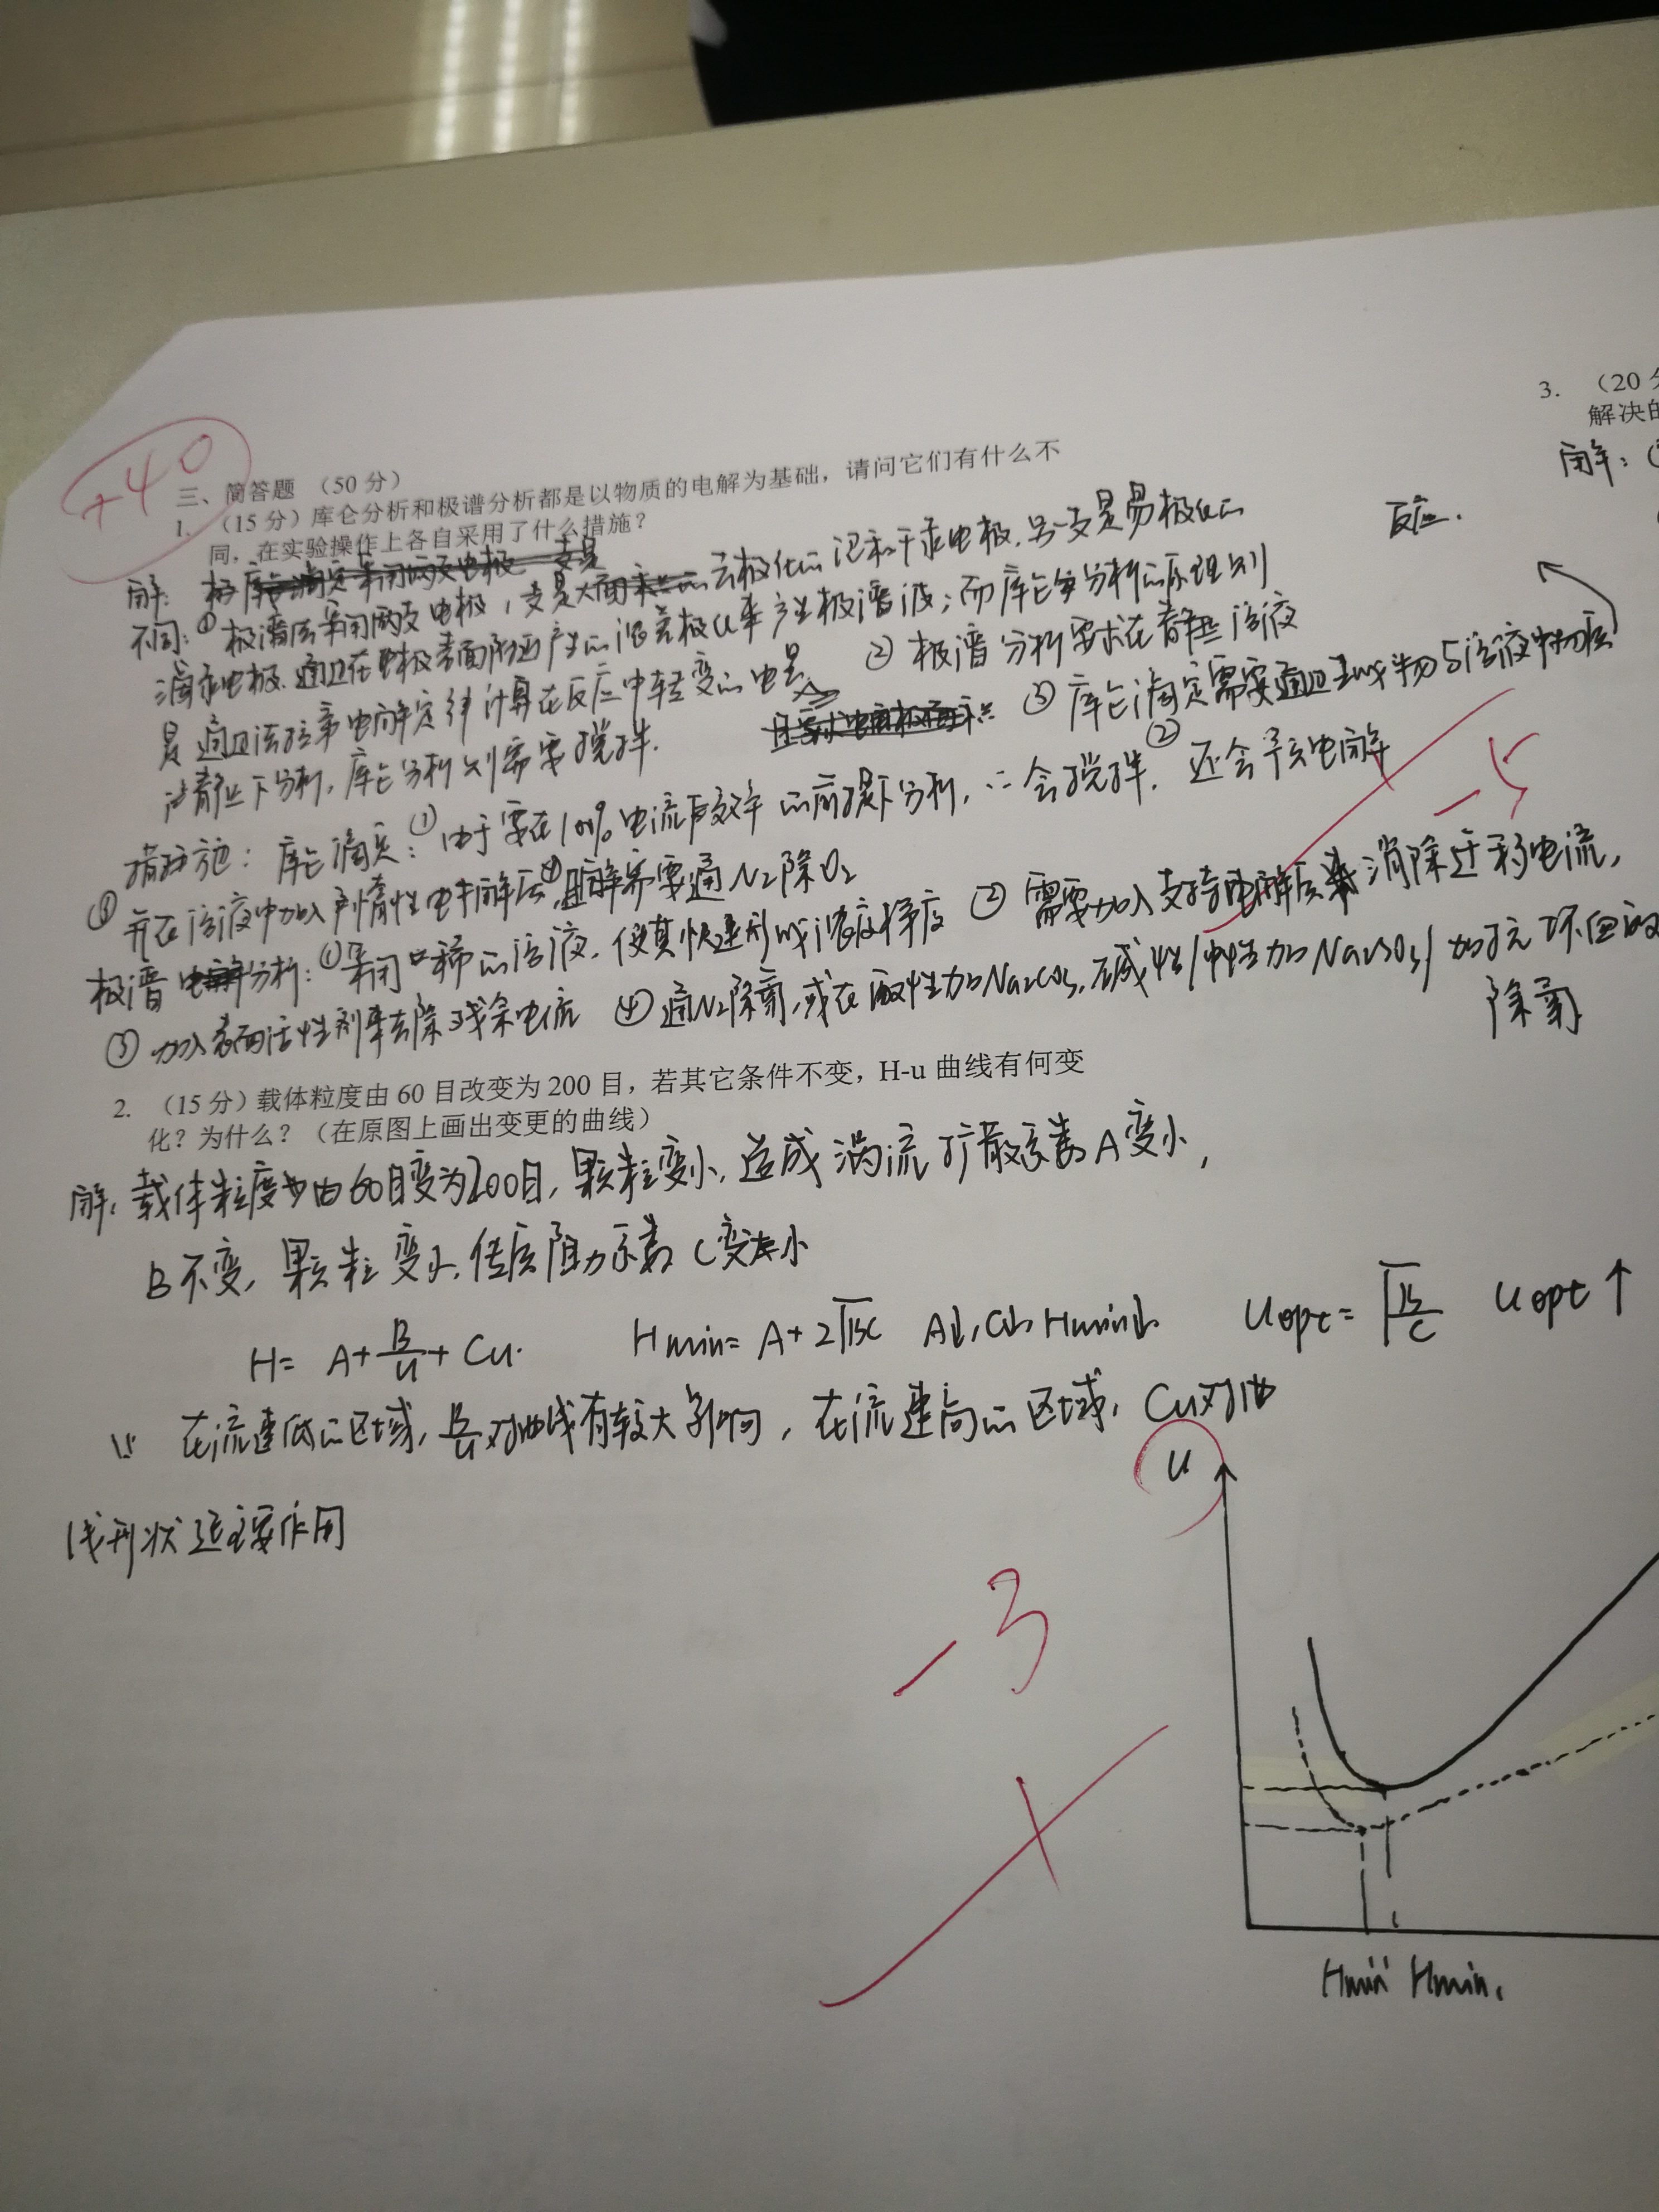 +40
三、简答题 （50 分）
1. （15 分）库仑分析和极谱分析都是以物质的电解为基础，请问它们有什么不
同，在实验操作上各自采用了什么措施？
解：
不同：① 极谱法采用两支电极，一支是大面 去极化的 饱和甘汞电极，另一支是易极化的
滴汞电极，通过在电极表面附近产生的浓差极化来产生极谱波；而库仑分析的原理则
是通过法拉第电解定律计算在反应中转变的电量 ② 极谱分析要求在静止溶液
静止下分析，库仑分析则需要搅拌. ③ 库仑滴定需要通过 与溶液中物质
反应.
措施：库仑滴定：① 由于要在100%电流效率的前提下分析，∴会搅拌. ② 还会预电解
③ 并在溶液中加入惰性电解质 ④ 需要通N2除O2
-5
极谱 分析：① 采用 稀的溶液，使其快速形成浓度梯度 ② 需要加入支持电解质来消除迁移电流，
③ 加入表面活性剂来去除残余电流 ④ 通N2除氧，或在酸性加Na2CO3，碱性/中性加Na2SO3/加抗坏血酸
除氧
2. （15 分）载体粒度由 60 目改变为 200 目，若其它条件不变，H-u 曲线有何变
化？为什么？（在原图上画出变更的曲线）
解：载体粒度由60目变为200目，颗粒变小，造成涡流扩散系数A变小，
B不变，颗粒变小，传质阻力系数C变小
H= A+B/u+Cu. Hmin= A+2√BC A↓，C↓，Hmin↓. uopt=√B/C uopt↑
∴ 在流速低的区域，B/u对曲线有较大影响，在流速高的区域，Cu对曲
线形状起主要作用
u
-3
Hmin' Hmin.
3. （20 分
解决的
解：